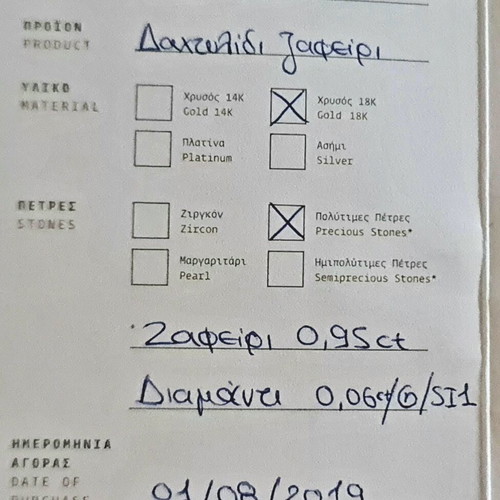 ΠΡΟΪΟΝ
PRODUCT
Δαχτυλίδι ζαφείρι
ΥΛΙΚΟ
MATERIAL
Χρυσός 14K
Gold 14K
Χρυσός 18K
Gold 18K
Πλατίνα
Platinum
Ασήμι
Silver
ΠΕΤΡΕΣ
STONES
Ζιργκόν
Zircon
Πολύτιμες Πέτρες
Precious Stones*
Μαργαριτάρι
Pearl
Ημιπολύτιμες Πέτρες
Semiprecious Stones*
Ζαφείρι 0,95ct
Διαμάντι 0,06ct/G/SI1
ΗΜΕΡΟΜΗΝΙΑ
ΑΓΟΡΑΣ
DATE OF
PURCHASE
01/08/2019